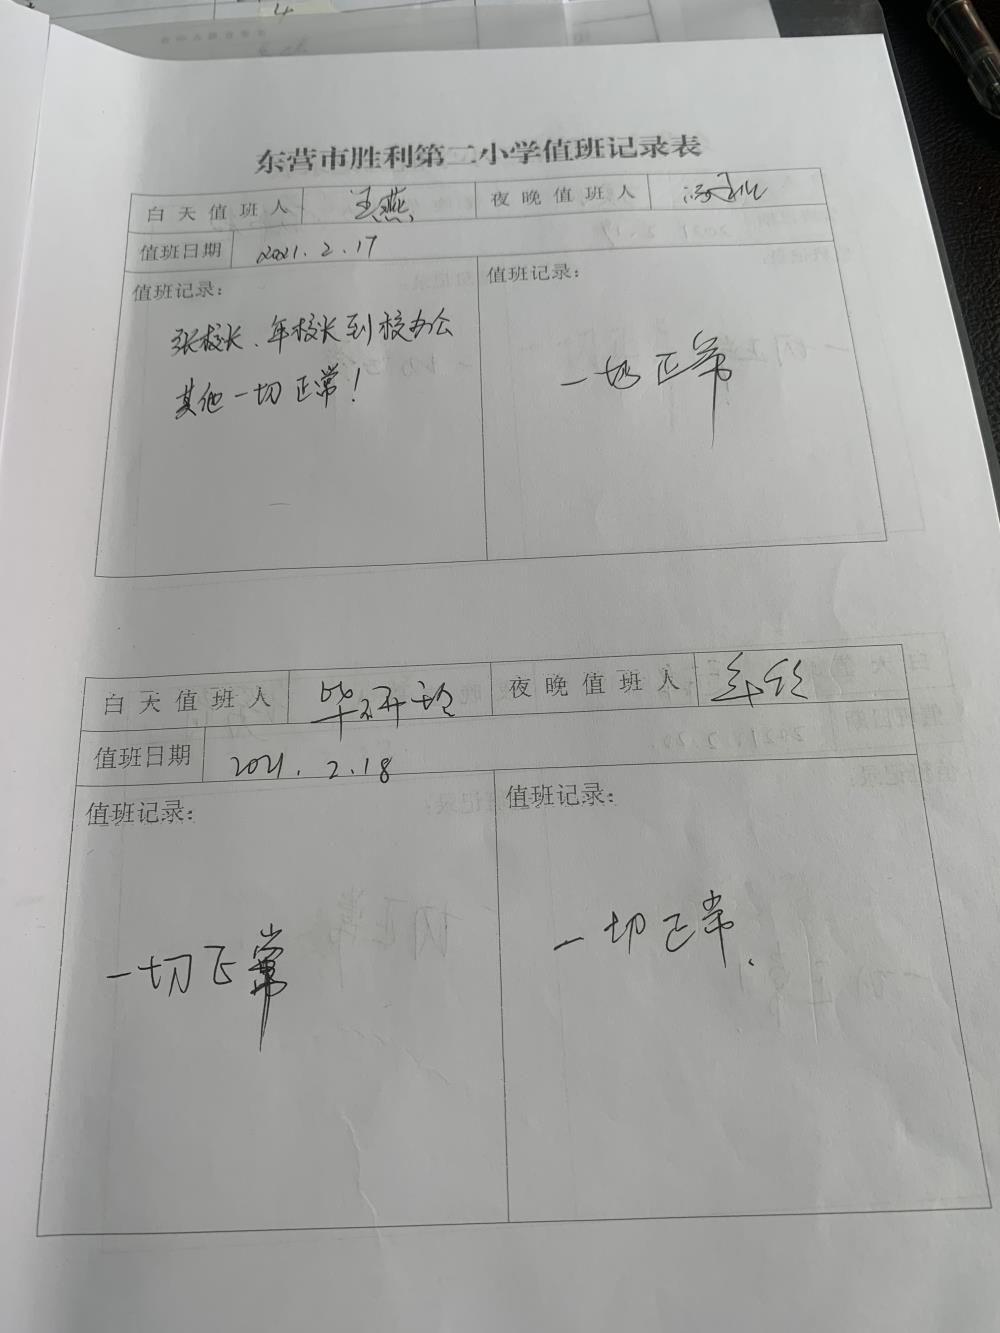 东营市胜利第二小学值班记录表
白天值班人 王燕 夜晚值班人
值班日期 2021.2.17
值班记录: 值班记录:
张校长、年校长到校办公
其他一切正常!
一切正常
白天值班人 毕研玲 夜晚值班人
值班日期 2021.2.18
值班记录: 值班记录:
一切正常 一切正常.